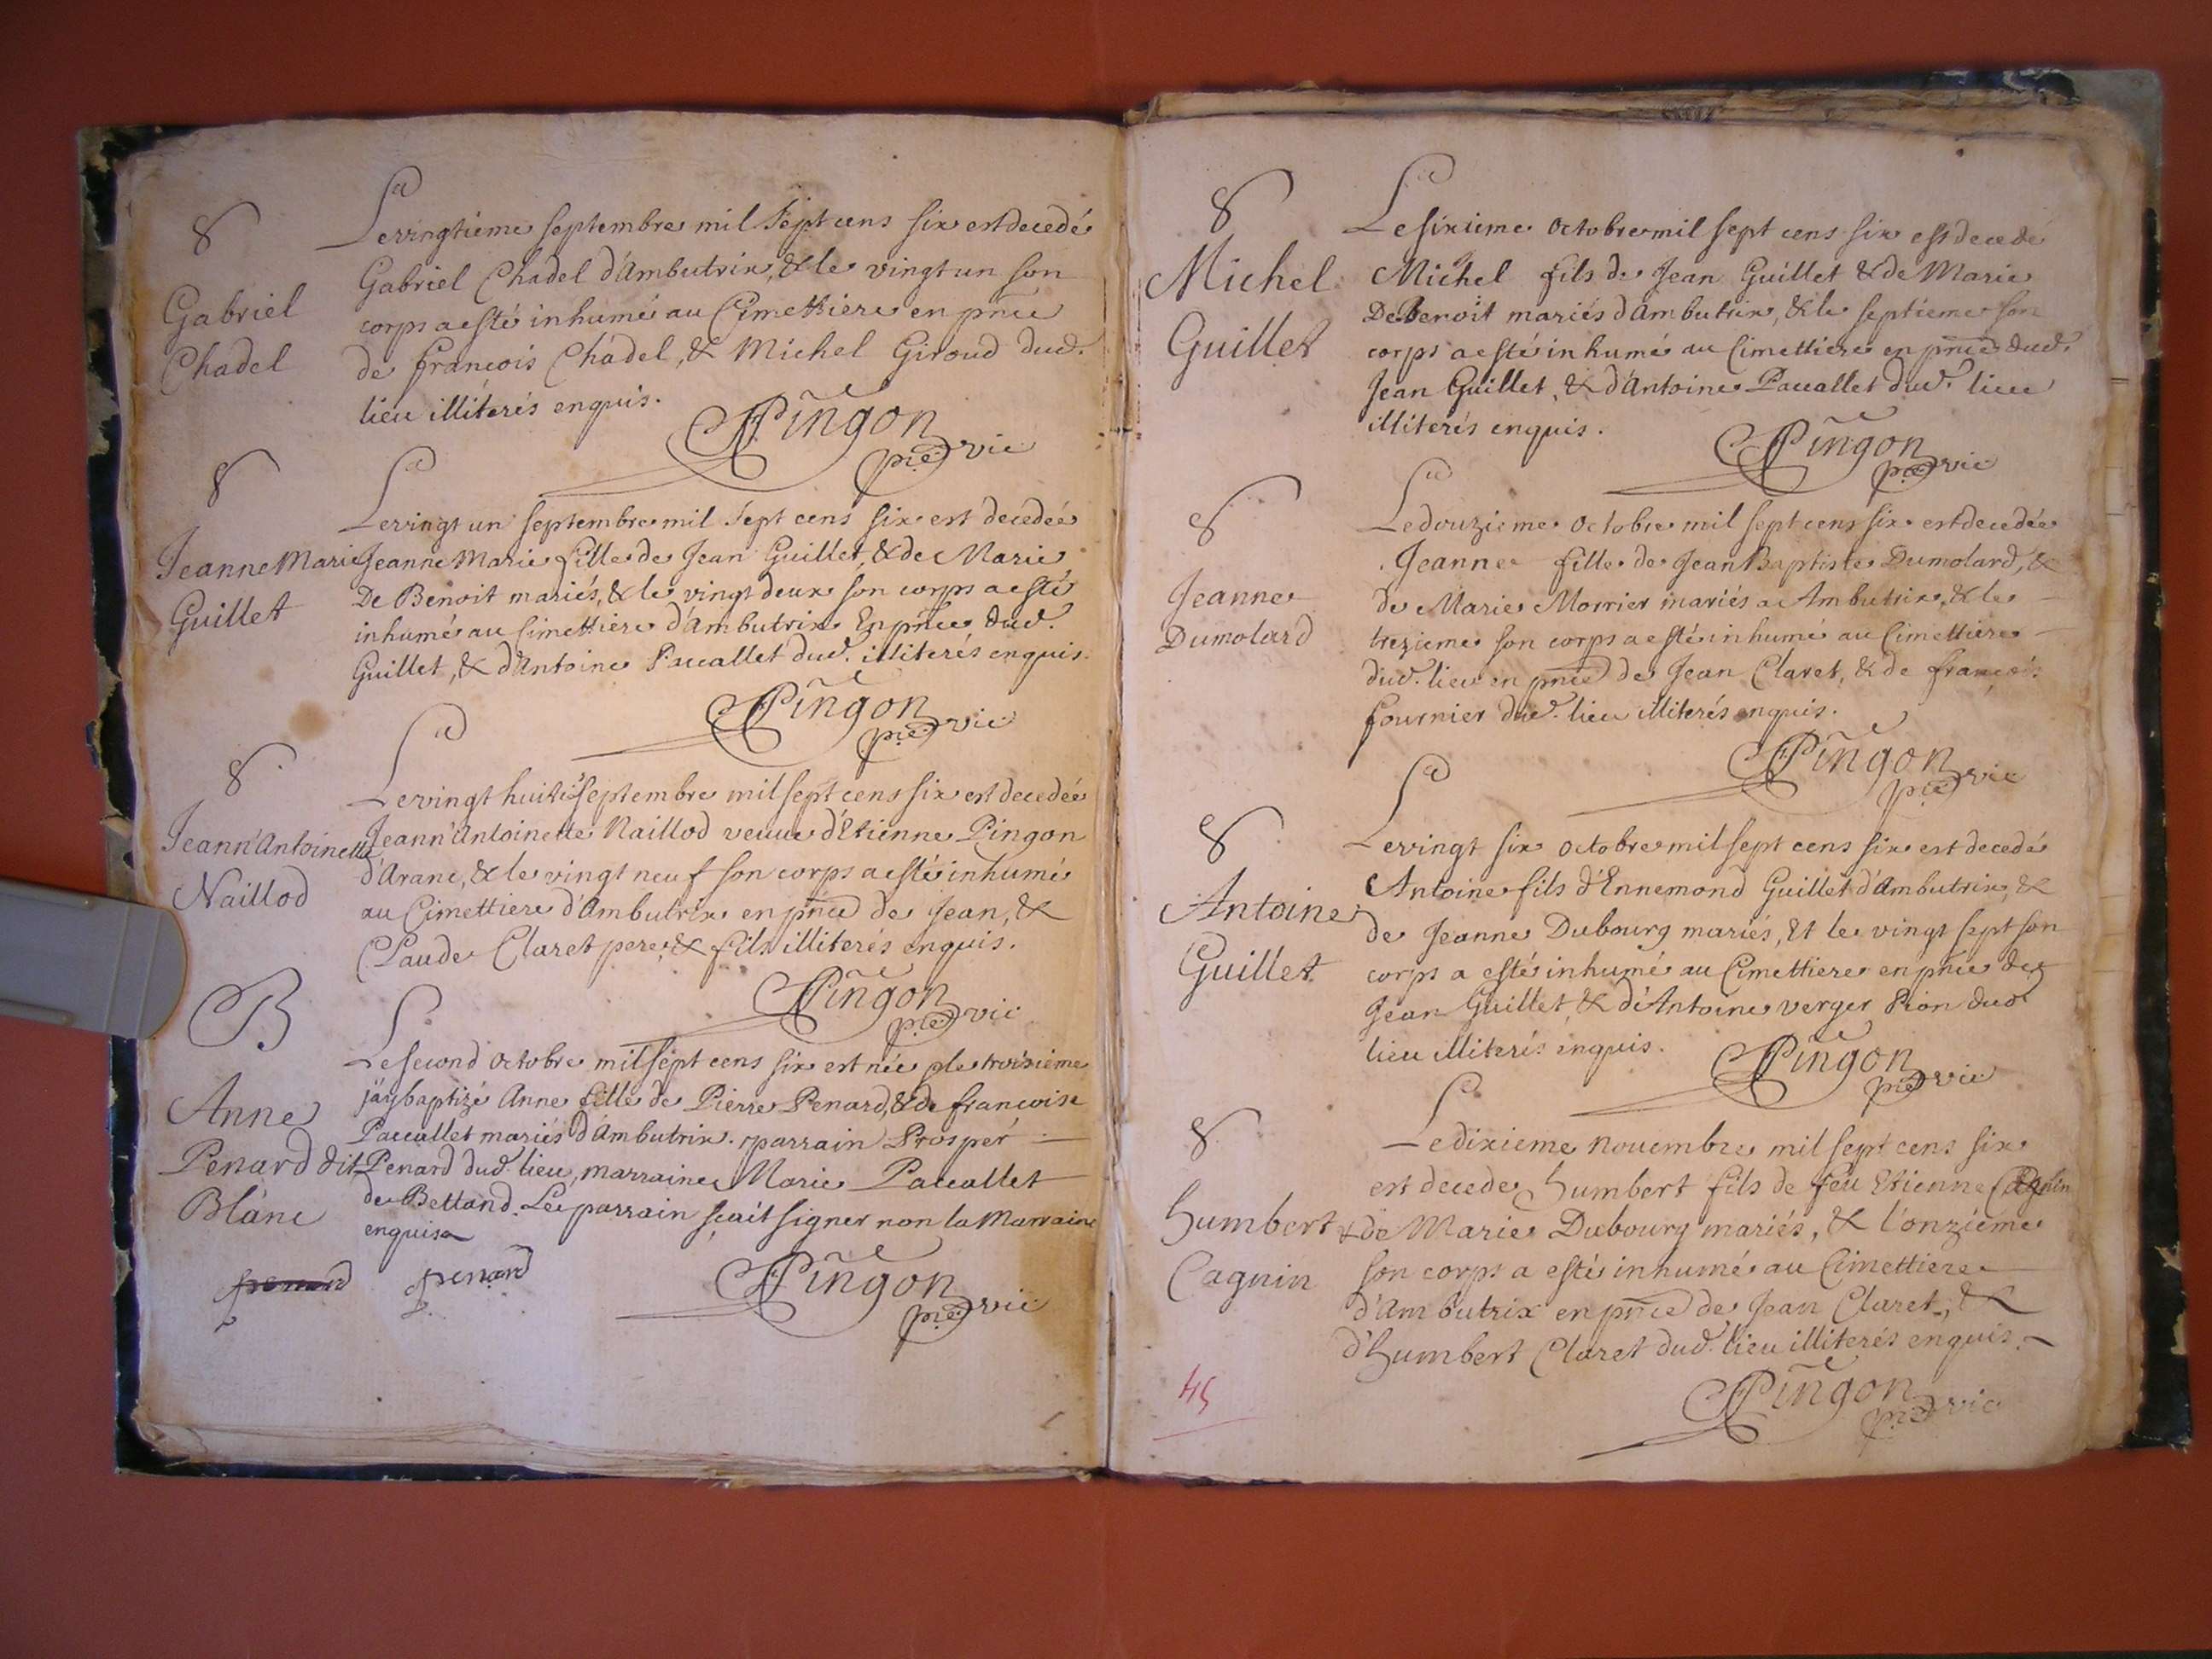 8
Gabriel
Chadel
Le vingtieme septembre mil sept cens six est decedé
Gabriel Chadel d'Ambutrix, & le vingt un son
corps a esté inhumé au Cimettiere en pñce
de françois Chadel, & Michel Giroud dud.
lieu illiterés enquis.
Pingon
ptre vic
8
Jeanne Marie
Guillet
Le vingt un septembre mil sept cens six est decedée
Jeanne Marie fille de Jean Guillet, & de Marie
De Benoit mariés, & le vingt deux son corps a esté
inhumé au Cimettiere d'Ambutrix En pñce dud.
Guillet, & d'Antoine Paccallet dud. illiterés enquis.
Pingon
ptre vic
8
Jeann'Antoinette
Naillod
Le vingt huitie septembre mil sept cens six est decedée
Jeann'Antoinette Naillod veuue d'Etienne Pingon
d'Aranc, & le vingt neuf son corps a esté inhumé
au Cimettiere d'Ambutrix en pñce de Jean, &
Claude Claret pere, & fils illiterés enquis.
Pingon
ptre vic
B
Anne
Penard dit
Blanc
Le second octobre mil sept cens six est née & le troisieme
j'ay baptizé Anne fille de Pierre Penard, & de françoise
Paccallet mariés d'Ambutrix. parrain Prosper
Penard dud. lieu, marraine Marie Paccallet
de Bettand. Le parrain sçait signer non la Marraine
enquis
penard
Pingon
ptre vic
8
Michel
Guillet
Le sixieme octobre mil sept cens six est decedé
Michel fils de Jean Guillet & de Marie
De Benoit mariés d'Ambutrix, & le septieme son
corps a esté inhumé au Cimettiere en pñce dud.
Jean Guillet, & d'Antoine Paccallet dud. lieu
illiterés enquis.
Pingon
ptre vic
8
Jeanne
Dumolard
Le douzieme octobre mil sept cens six est decedée
Jeanne fille de Jean Baptiste Dumolard, &
de Marie Morrier mariés a Ambutrix, & le
trezieme son corps a esté inhumé au Cimettiere
dud. lieu en pñce de Jean Claret, & de françois
fournier dud. lieu illiterés enquis.
Pingon
ptre vic
8
Antoine
Guillet
Le vingt six octobre mil sept cens six est decedé
Antoine fils d'Ennemond Guillet d'Ambutrix, &
de Jeanne Dubourg mariés, Et le vingt sept son
corps a esté inhumé au Cimettiere en pñce de
Jean Guillet, & d'Antoine verger Pion dud.
lieu illiterés enquis.
Pingon
ptre vic
8
humbert
Cagnin
Le dixieme nouembre mil sept cens six
est decede humbert fils de feu Etienne Cagnin
& de Marie Dubourg mariés, & l'onzieme
son corps a esté inhumé au Cimettiere
d'Ambutrix en pñce de Jean Claret, &
d'humbert Claret dud. lieu illiterés enquis.
Pingon
ptre vic
45